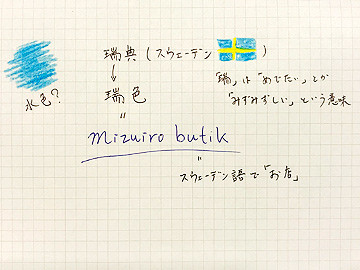 瑞典(スウェーデン)
水色?
↓
瑞色
「瑞」は「めでたい」とか
「みずみずしい」という意味
〃
mizuiro butik
〃
スウェーデン語で「お店」